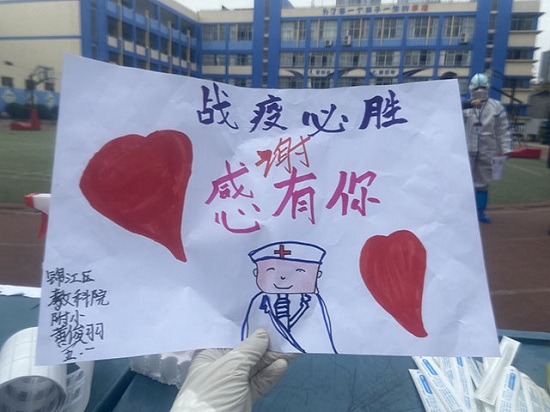 战疫必胜
感谢有你
锦江区
教科院
附小
黄俊羽
五.一